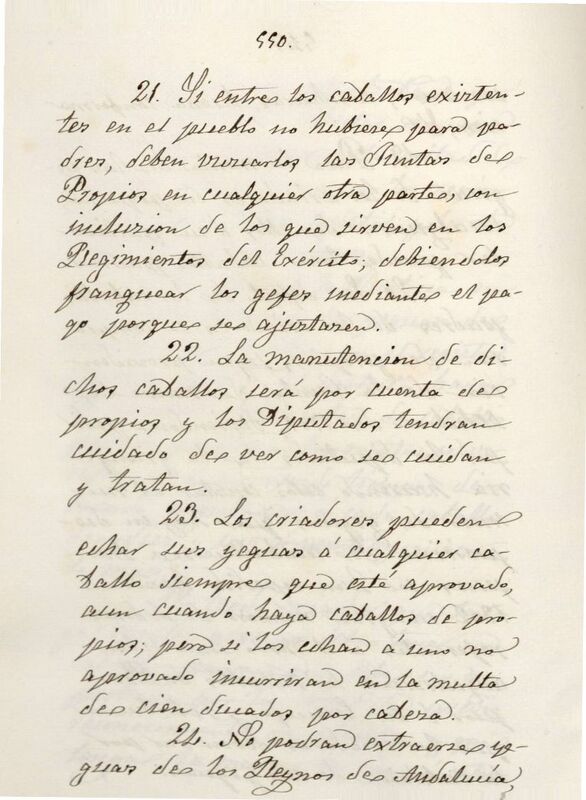 550.
21. Si entre los caballos existen-
tes en el pueblo no hubiese para pa-
dres, deben buscarlos las Juntas de
Propios en cualquier otra parte, con
inclusion de los que sirven en los
Regimientos del Exército; debiendolos
franquear los gefes mediante el pa-
go porque se ajustaren.
22. La manutencion de di-
chos caballos será por cuenta de
propios y los Diputados tendran
cuidado de ver como se cuidan
y tratan.
23. Los criadores pueden
echar sus yeguas á cualquier ca-
ballo siempre que esté aprovado,
aun cuando haya caballos de pro-
pios; pero si los echan á uno no
aprovado incurriran en la multa
de cien ducados por cabeza.
24. No podran extraerse ye-
guas de los Reynos de Andalucía,